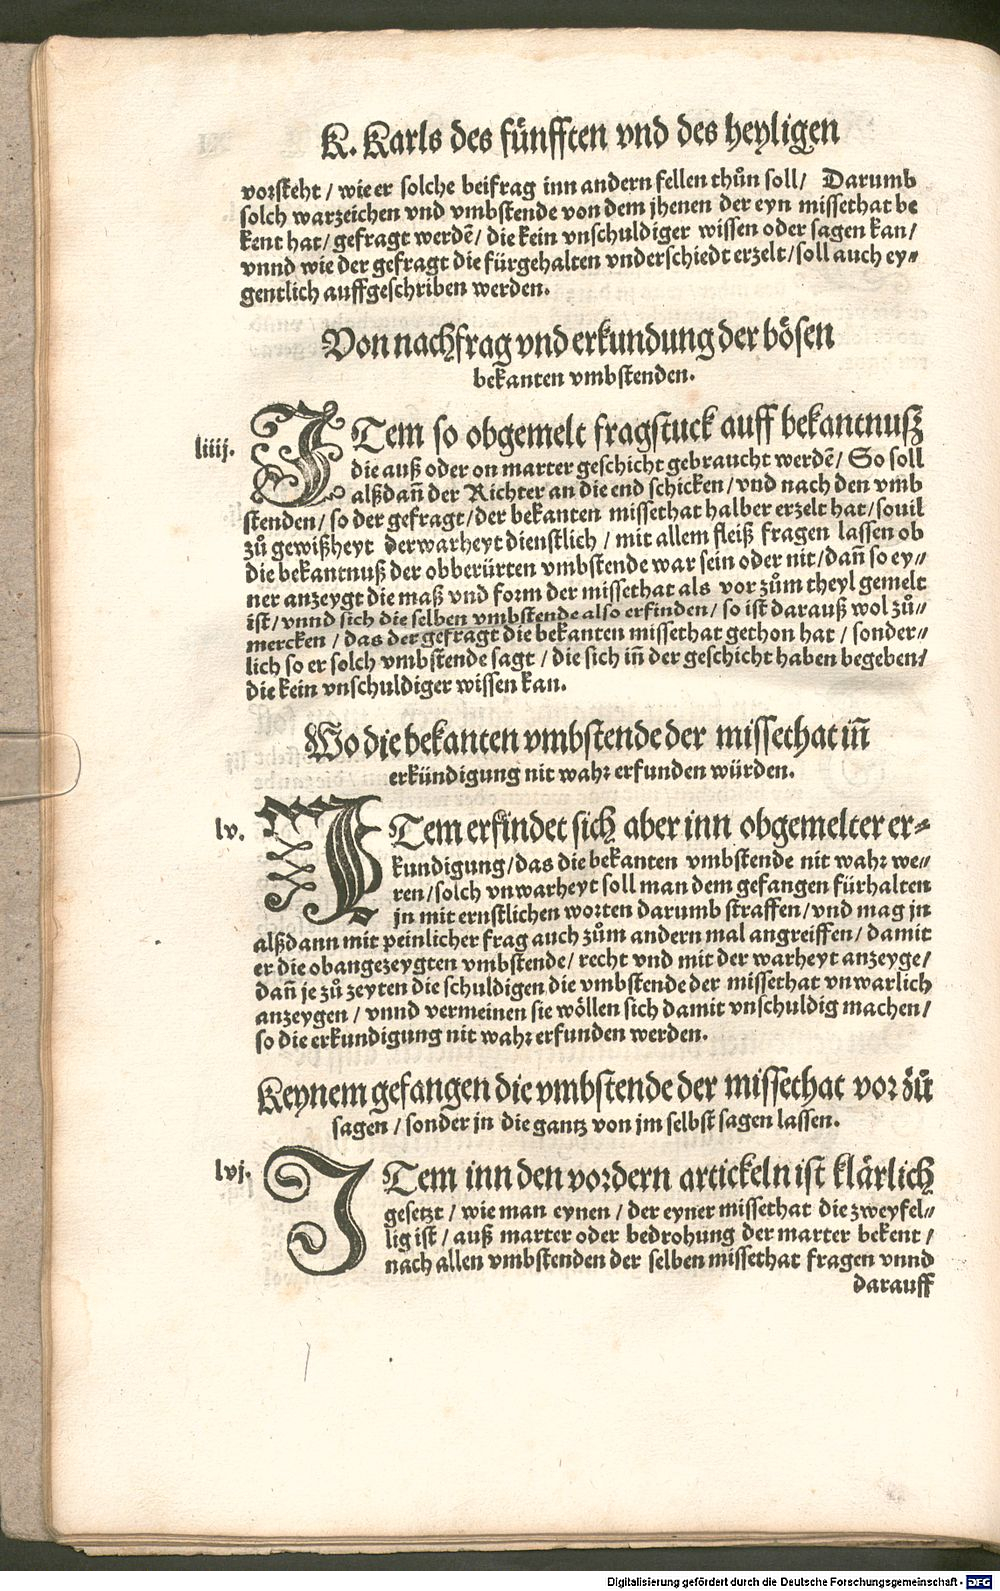 K. Karls des fünfften vnd des heyligen
vorsteht / wie er solche beifrag inn andern fellen thůn soll / Darumb
solch warzeichen vnd vmbstende von dem jhenen der eyn missethat be
kent hat / gefragt werdẽ / die kein vnschuldiger wissen oder sagen kan /
vnnd wie der gefragt die fürgehalten vnderschiedt erzelt / soll auch ey⸗
gentlich auffgeschriben werden.
Von nachfrag vnd erkundung der bösen
bekanten vmbstenden.
liiij. ITem so obgemelt fragstuck auff bekantnusz
die auß oder on marter geschicht gebraucht werdẽ / So soll
alßdañ der Richter an die end schicken / vnd nach den vmb
stenden / so der gefragt / der bekanten missethat halber erzelt hat / souil
zů gewißheyt der warheyt dienstlich / mit allem fleiß fragen lassen ob
die bekantnuß der obberürten vmbstende war sein oder nit / dañ so ey⸗
ner anzeygt die maß vnd form der missethat als vor zům theyl gemelt
ist / vnnd sich die selben vmbstende also erfinden / so ist darauß wol zů⸗
mercken / das der gefragt die bekanten missethat gethon hat / sonder⸗
lich so er solch vmbstende sagt / die sich iñ der geschicht haben begeben /
die kein vnschuldiger wissen kan.
Wo die bekanten vmbstende der missethat iñ
erkündigung nit wahr erfunden würden.
lv. ITem erfindet sich aber inn obgemelter er⸗
kundigung / das die bekanten vmbstende nit wahr we⸗
ren / solch vnwarheyt soll man dem gefangen fürhalten
jn mit ernstlichen worten darumb straffen / vnd mag jn
alßdann mit peinlicher frag auch zům andern mal angreiffen / damit
er die obangezeygten vmbstende / recht vnd mit der warheyt anzeyge /
dañ je zů zeyten die schuldigen die vmbstende der missethat vnwarlich
anzeygen / vnnd vermeinen sie wöllen sich damit vnschuldig machen /
so die erkundigung nit wahr erfunden werden.
Keynem gefangen die vmbstende der missethat vor zů
sagen / sonder jn die gantz von jm selbst sagen lassen.
lvj. ITem inn den vordern artickeln ist klärlich
gesetzt / wie man eynen / der eyner missethat die zweyfel⸗
lig ist / auß marter oder bedrohung der marter bekent /
nach allen vmbstenden der selben missethat fragen vnnd
darauff
Digitalisierung gefördert durch die Deutsche Forschungsgemeinschaft - DFG